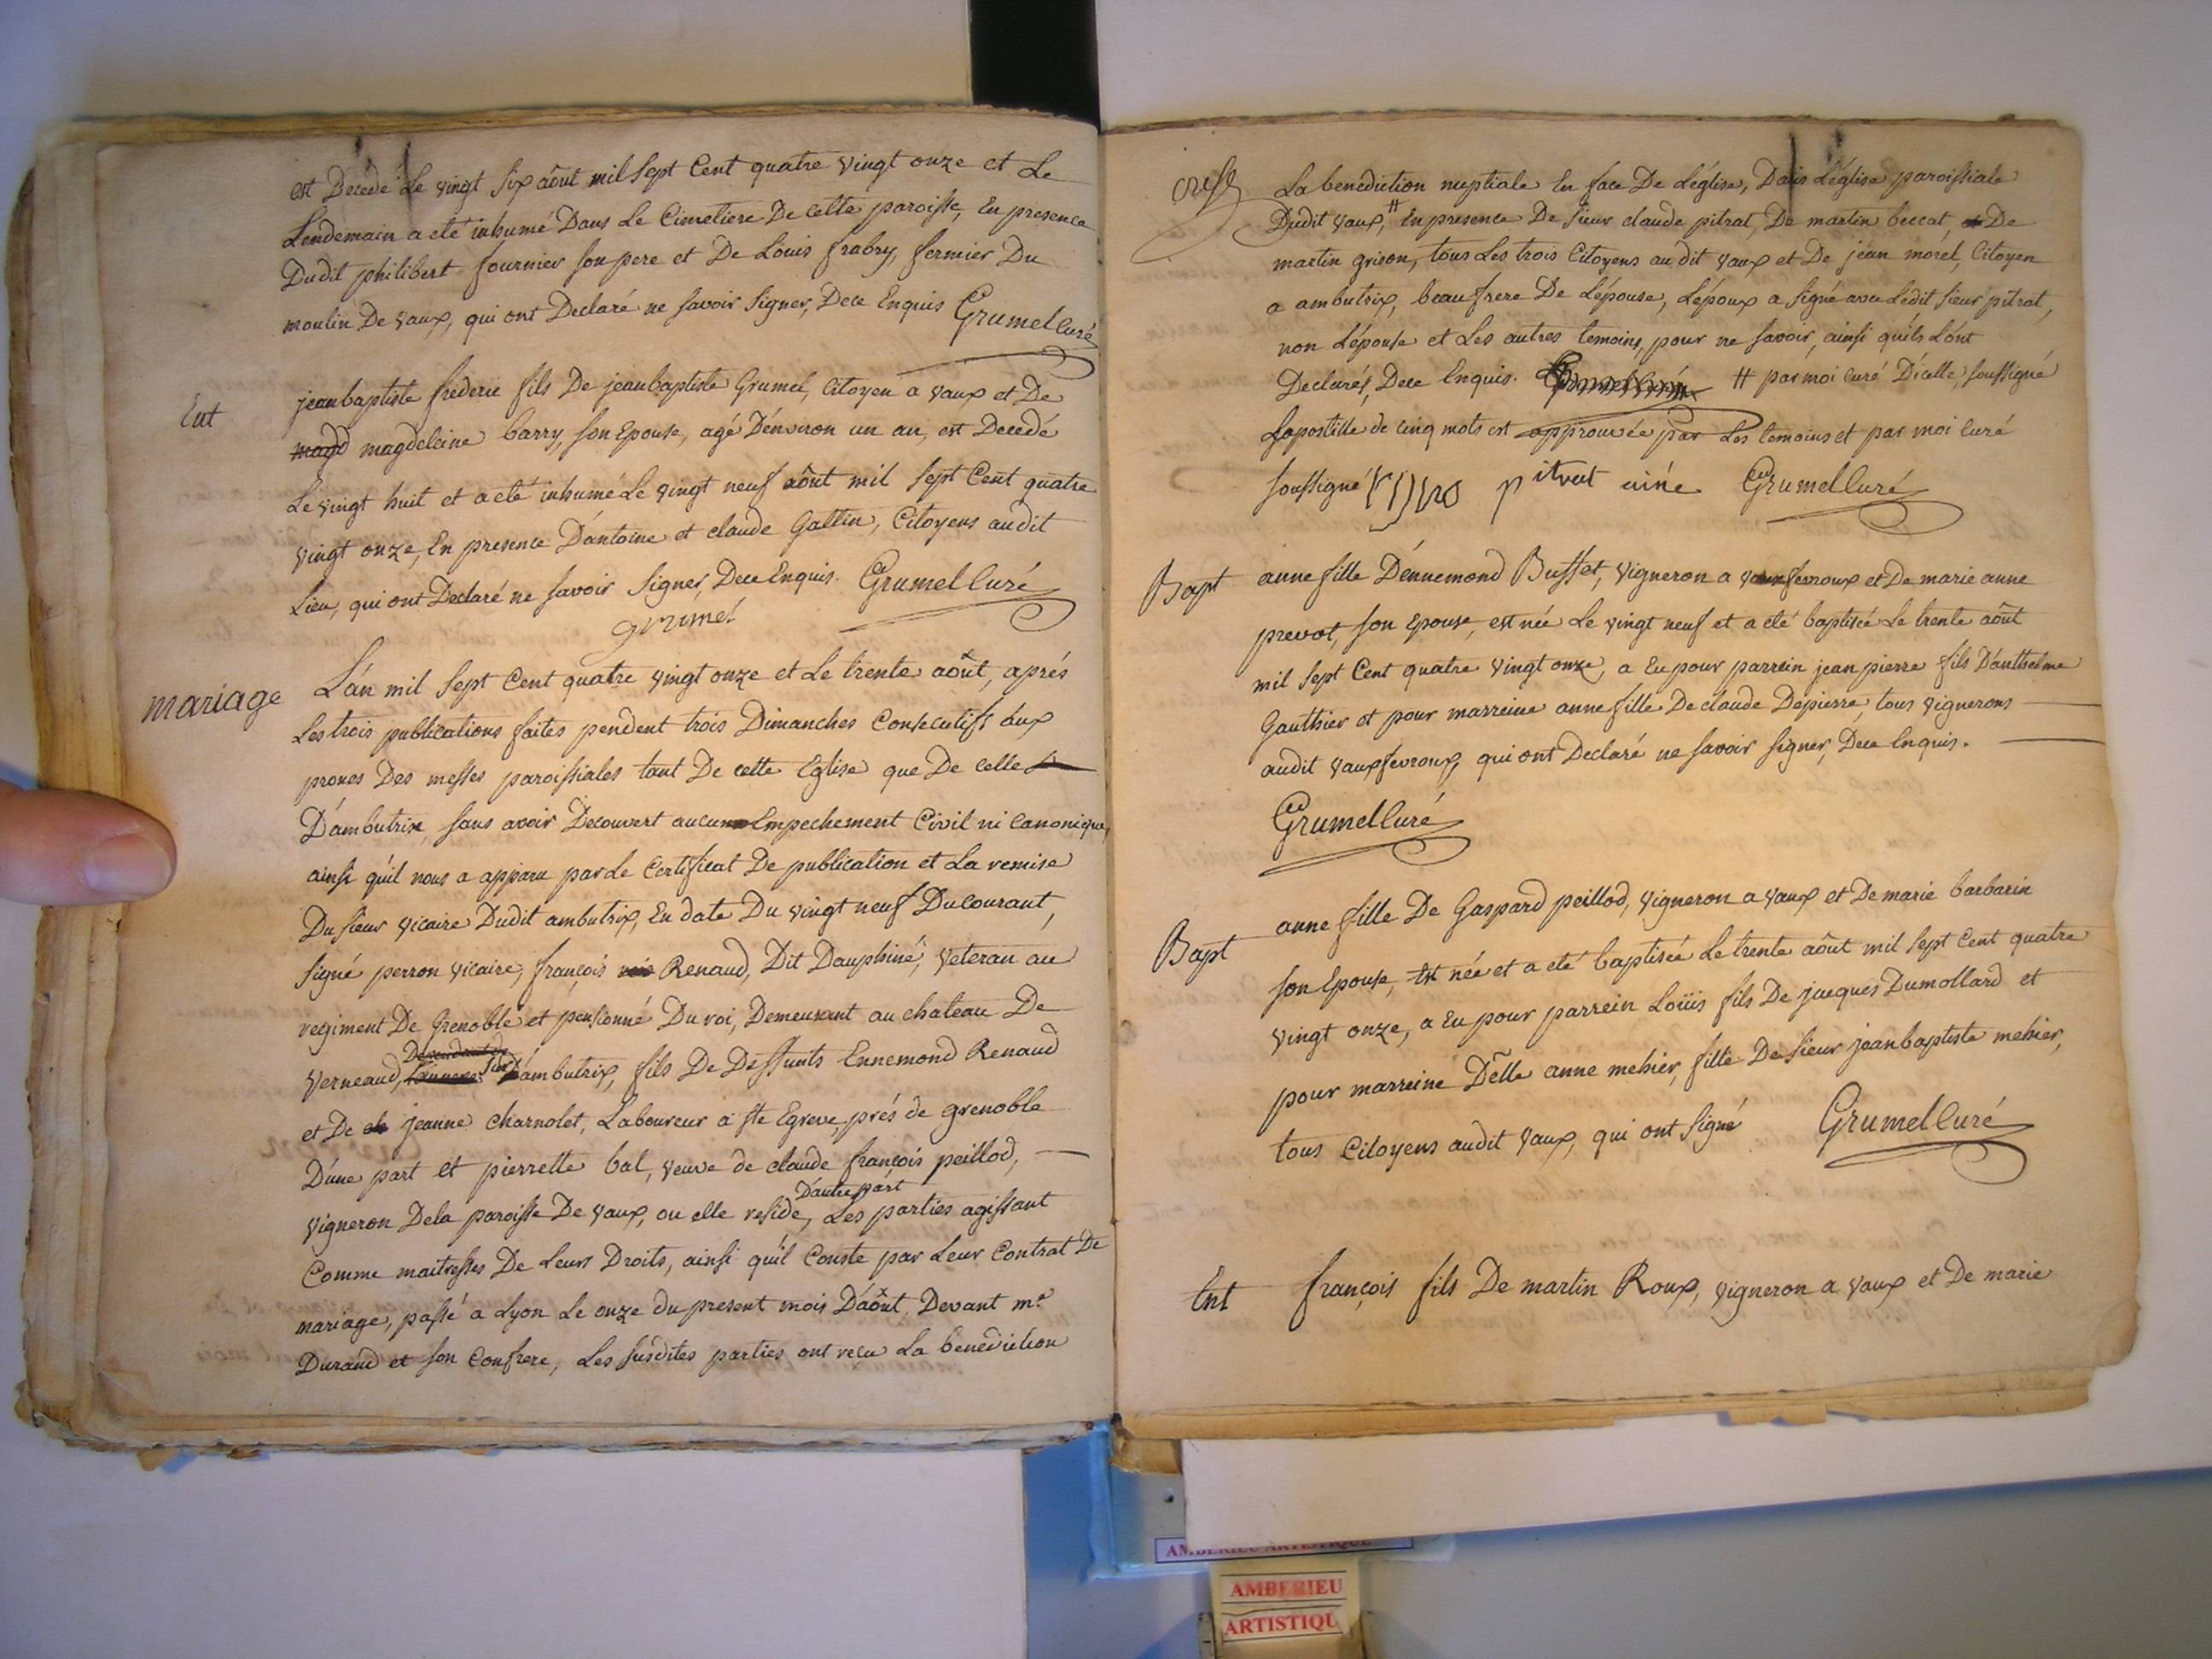 est Decedé Le vingt six aôut mil sept Cent quatre vingt onze et Le
Lendemain a eté inhumé Dans Le Cimetiere De cette paroisse, En presence
Dudit philibert fournier son pere et De Louis frabry, fermier Du
moulin De vaux, qui ont Declaré ne savoir signer, Dece Enquis Grumel Curé
Ent
jeanbaptiste frederic fils De jeanbaptiste Grumel, Citoyen a vaux et De
magd magdeleine barry, son Epouse, agé D'environ un an, est Decedé
Le vingt huit et a eté inhumé Le vingt neuf aôut mil sept Cent quatre
vingt onze, En presence D'antoine et claude Gallin, Citoyens audit
Lieu, qui ont Declaré ne savoir signer, Dece Enquis. Grumel Curé
grumel
mariage
L'an mil sept Cent quatre vingt onze et Le trente aôut, aprés
Les trois publications faites pendent trois Dimanches Consecutifs aux
prones Des messes paroissiales tant De cette Eglise que De celle
D'ambutrix, sans avoir Decouvert aucun Empechement Civil ni Canonique,
ainsi qu'il nous a apparu par Le Certificat De publication et La remise
Du sieur vicaire Dudit ambutrix, En date Du vingt neuf Du courant,
signé perron vicaire, françois Renaud, Dit Dauphiné, veteran au
regiment De Grenoble et pensionné Du roi, Demeurant au chateau De
verneaud, sur D'ambutrix, fils De Deffunts Ennemond Renaud
et De jeanne charnolet, Laboureur a ste Egreve, prés de grenoble
D'une part et pierrette bal, veuve de claude françois peillod,
D'autre part
vigneron Dela paroisse De vaux, ou elle reside, Les parties agissant
Comme maitresses De Leurs Droits, ainsi qu'il Conste par Leur Contrat De
mariage, passé a Lyon Le onze du present mois D'aôut, Devant me
Durand et son Confrere, Les susdites parties ont reçu La benediction
La benediction nuptiale En face De L'église, Dans L'église paroissiale
Dudit vaux, # En presence De sieur claude pitrat, De martin beccat, De
martin grison, tous Les trois Citoyens au dit vaux et De jean morel, Citoyen
a ambutrix, beaufrere De L'épouse, L'époux a signé avec Ledit sieur pitrat,
non L'épouse et Les autres temoins, pour ne savoir, ainsi qu'ils L'ont
Declarés, Dece Enquis. # par moi curé D'icelle, soussigné
L'apostille de cinq mots est approuvée par Les temoins et par moi curé
soussigné pitrat ainé Grumel Curé
Bapt
anne fille D'ennemond Buffet, vigneron a vauxfevroux et De marie anne
prevot, son Epouse, est née Le vingt neuf et a eté baptisée Le trente aôut
mil sept Cent quatre vingt onze, a Eu pour parrein jean pierre fils D'anthelme
Gauthier et pour marreine anne fille De claude Depierre, tous vignerons
audit vauxfevroux, qui ont Declaré ne savoir signer, Dece Enquis.
Grumel Curé
Bapt
anne fille De Gaspard peillod, vigneron a vaux et De marie barbarin
son Epouse, est née et a eté baptisée Le trente aôut mil sept Cent quatre
vingt onze, a Eu pour parrein Loüis fils De jacques Dumollard et
pour marreine Delle anne mehier, fille De sieur jeanbaptiste mehier,
tous Citoyens audit vaux, qui ont signé Grumel Curé
Ent
françois fils De martin Roux, vigneron a vaux et De marie
AMBERIEU ARTISTIQUE
AMBERIEU
ARTISTIQU